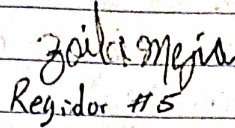 Zoila Mejia
Regidor #5